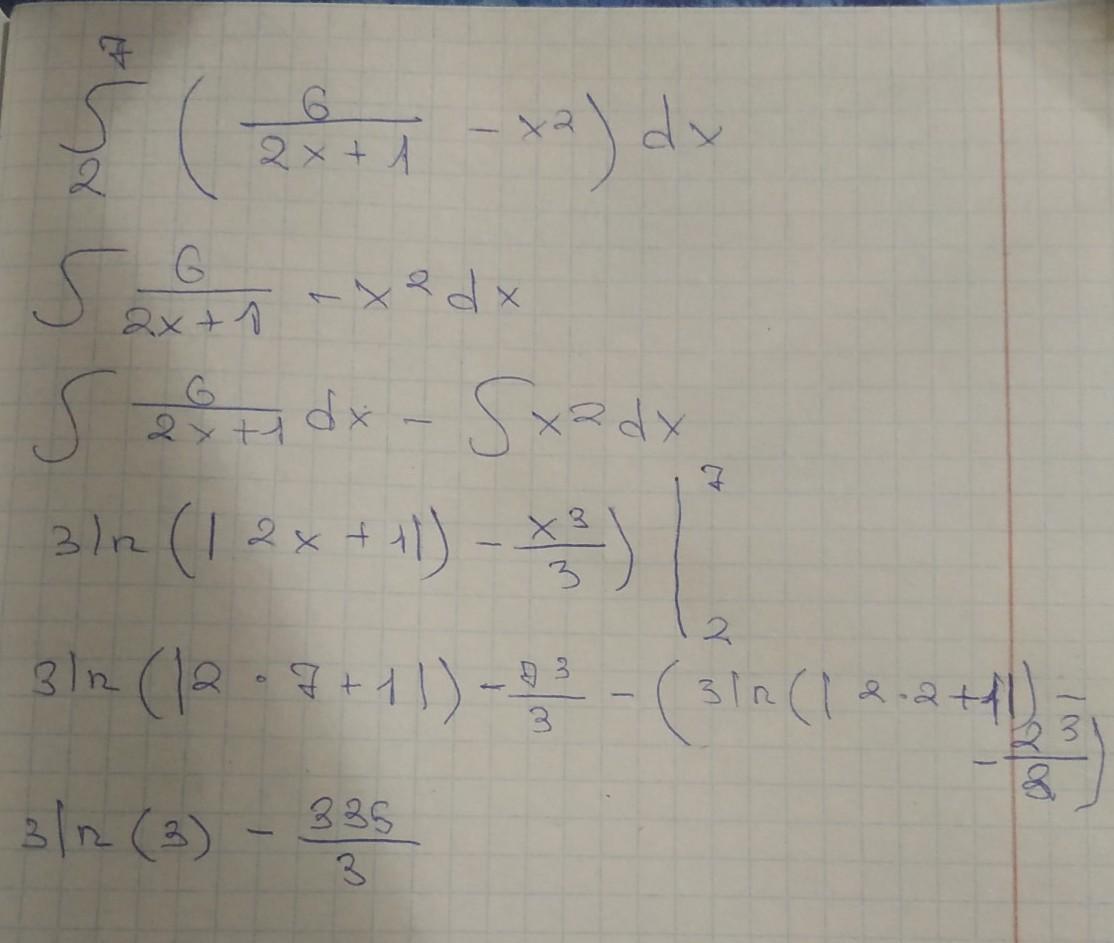 ∫₂⁷ (6/(2x+1) - x²) dx
∫ 6/(2x+1) - x² dx
∫ 6/(2x+1) dx - ∫ x² dx
3ln(|2x+1|) - x³/3) |₂⁷
3ln(|2·7+1|) - 7³/3 - (3ln(|2·2+1|) -
- 2³/3)
3ln(3) - 335/3